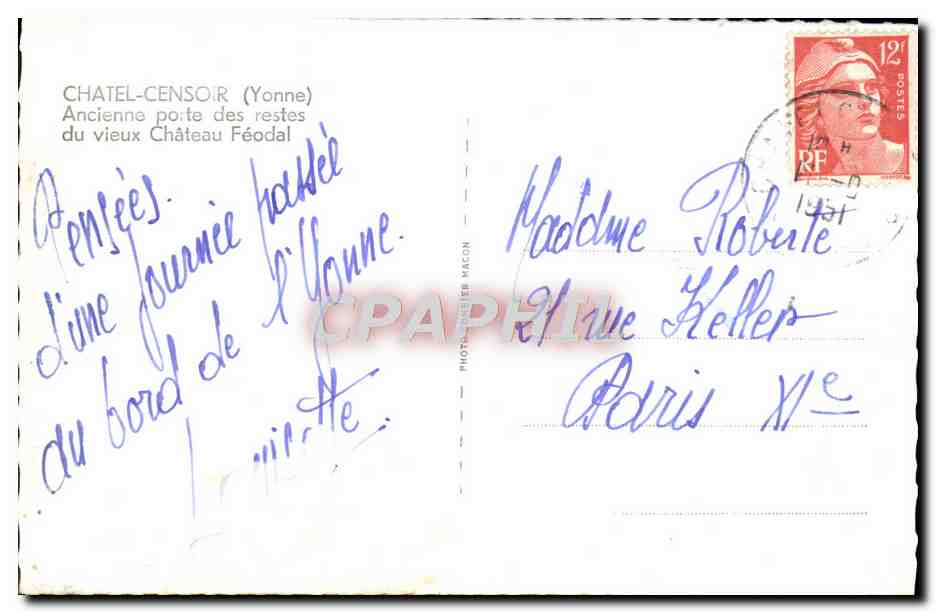 CHATEL-CENSOIR (Yonne)
Ancienne porte des restes
du vieux Château Féodal
Pensées.
d'une journée passée
au bord de l'Yonne.
PHOTO COMBIER MACON
CPAPHIL
12F
POSTES
RF
1951
Madame Roberte
21 rue Keller
Paris XIe